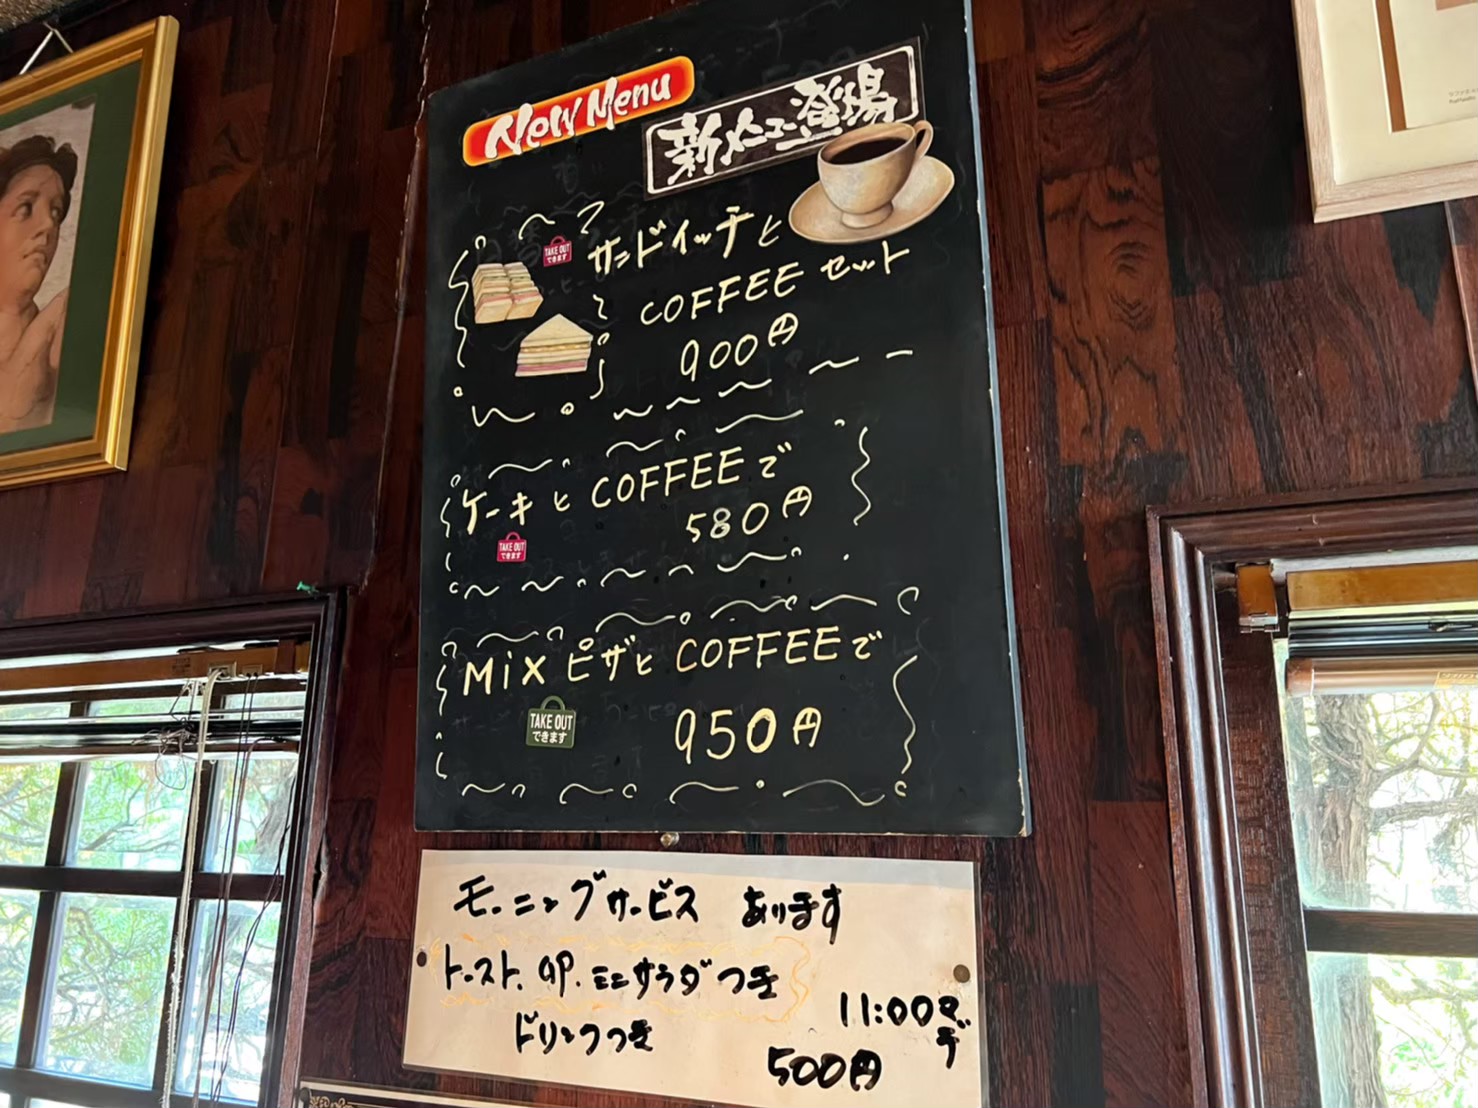 New Menu
新メニュー登場
TAKE OUT
できます
サンドイッチと
COFFEE セット
900円
ケーキと COFFEEで
580円
TAKE OUT
できます
MiX ピザと COFFEEで
TAKE OUT
できます
950円
モーニングサービス あります
トースト. ミニサラダつき
ドリンクつき
11:00マデ
500円